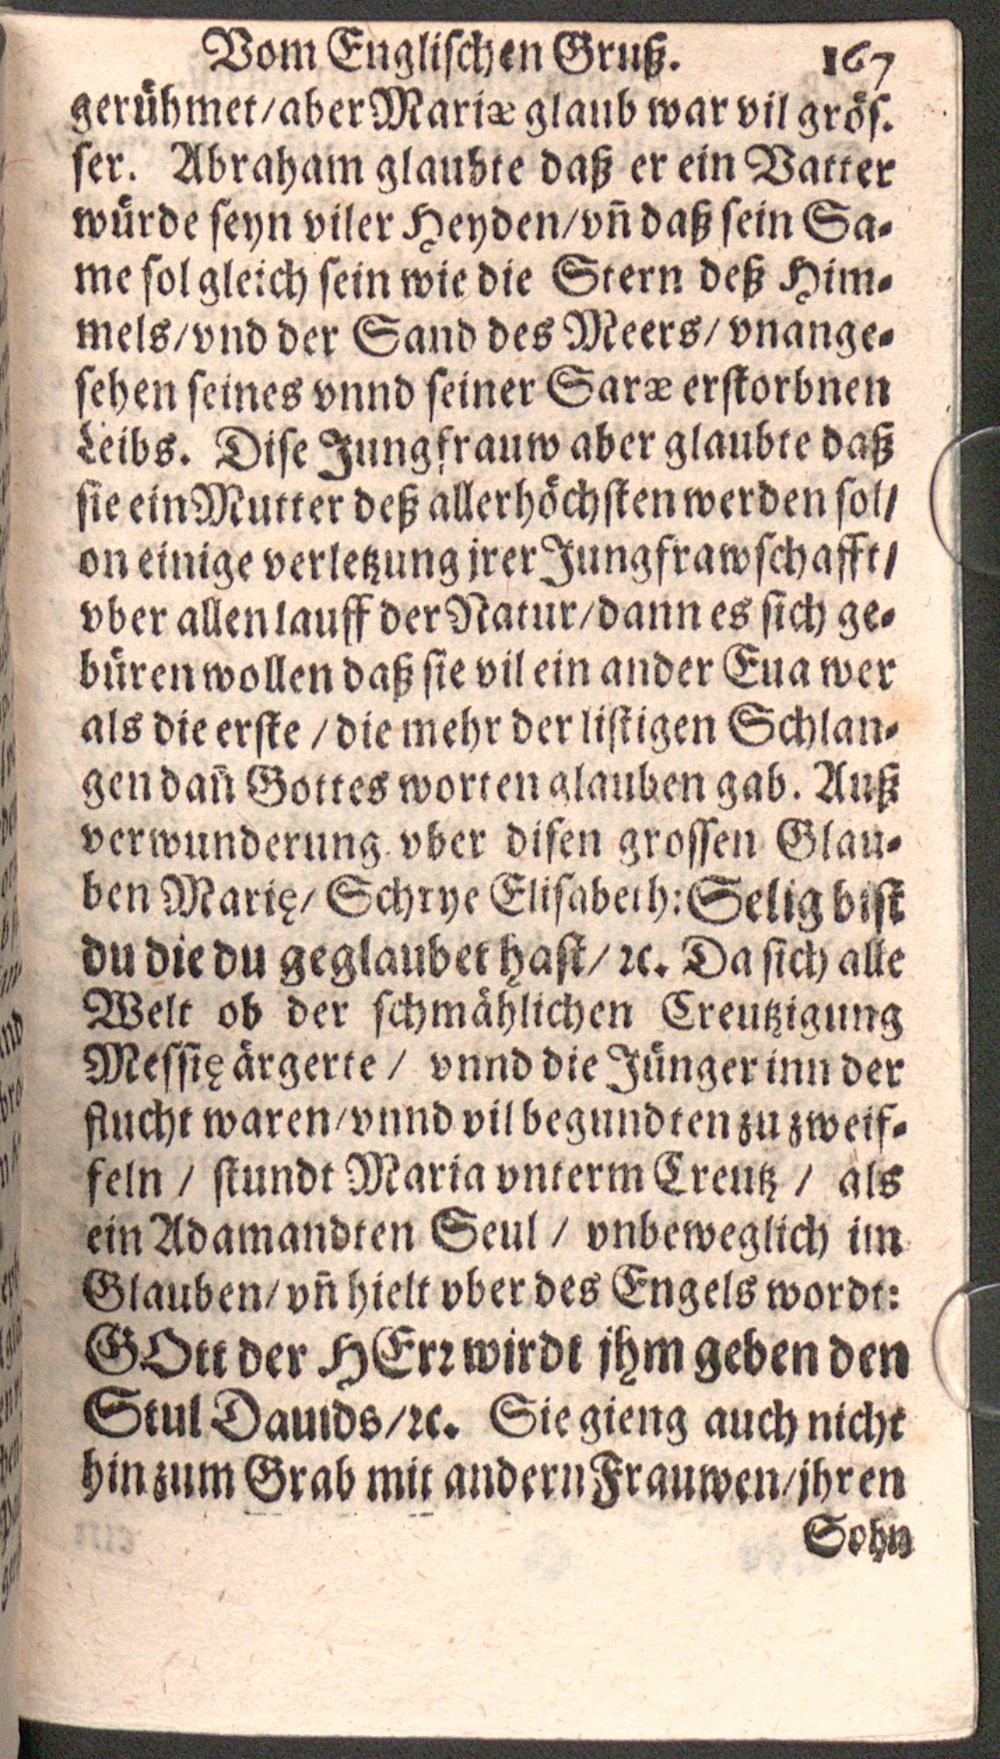 Vom Englischen Gruß. 167
gerühmet/aber Mariæ glaub war vil grös.
ser. Abraham glaubte daß er ein Vatter
würde seyn viler Heyden/vñ daß sein Sa-
me sol gleich sein wie die Stern deß Him-
mels/vnd der Sand des Meers/vnange-
sehen seines vnnd seiner Saræ erstorbnen
Leibs. Dise Jungfrauw aber glaubte daß
sie ein Mutter deß allerhöchsten werden sol/
on einige verletzung jrer Jungfrawschafft/
vber allen lauff der Natur/dann es sich ge-
büren wollen daß sie vil ein ander Eua wer
als die erste/die mehr der listigen Schlan-
gen dañ Gottes worten glauben gab. Auß
verwunderung vber disen grossen Glau-
ben Marię/Schrye Elisabeth: Selig bist
du die du geglaubet hast/ꝛc. Da sich alle
Welt ob der schmählichen Creutzigung
Messię ärgerte/ vnnd die Jünger inn der
flucht waren/vnnd vil begundten zu zweif-
feln/ stundt Maria vnterm Creutz/ als
ein Adamandten Seul/ vnbeweglich im
Glauben/vñ hielt vber des Engels wordt:
GOtt der HErꝛ wirdt jhm geben den
Stul Dauids/ꝛc. Sie gieng auch nicht
hin zum Grab mit andern Frauwen/jhren
Sohn